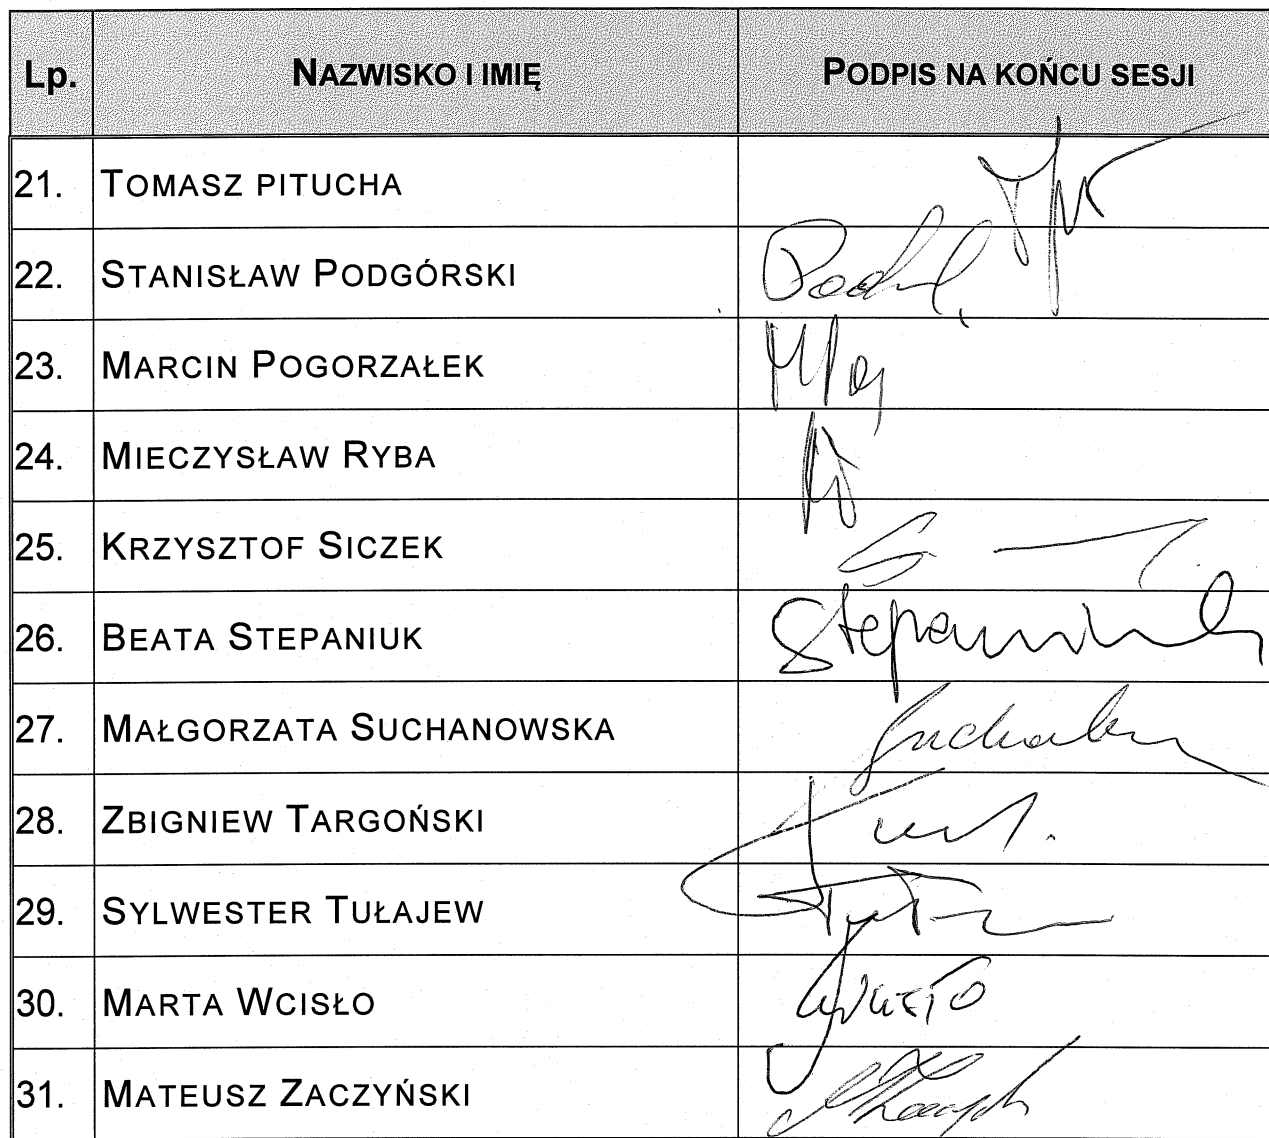 Lp. NAZWISKO I IMIĘ PODPIS NA KOŃCU SESJI
21. TOMASZ PITUCHA
22. STANISŁAW PODGÓRSKI
23. MARCIN POGORZAŁEK
24. MIECZYSŁAW RYBA
25. KRZYSZTOF SICZEK
26. BEATA STEPANIUK Stepaniuk
27. MAŁGORZATA SUCHANOWSKA
28. ZBIGNIEW TARGOŃSKI
29. SYLWESTER TUŁAJEW
30. MARTA WCISŁO
31. MATEUSZ ZACZYŃSKI